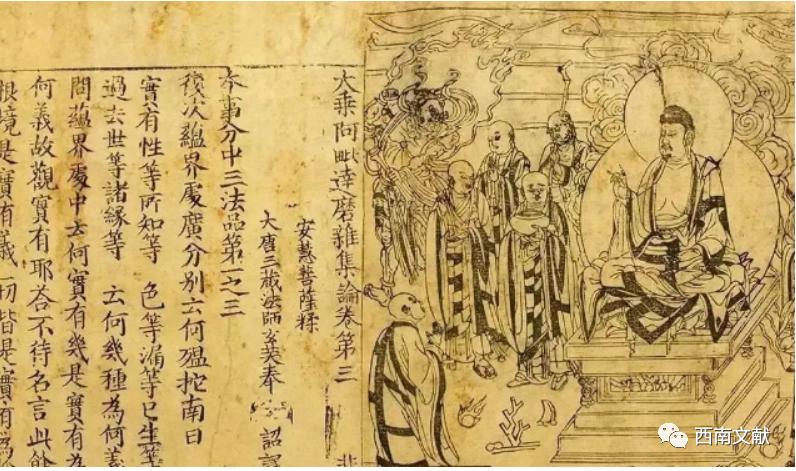 大乘阿毗達磨雜集論卷第三
安慧菩薩糅
大唐三藏法師玄奘奉 詔譯
本事分中三法品第一之三
復次蘊界處廣分別云何嗢拕南曰
實有性等所知等 色等漏等已生等
過去世等諸緣等 云何幾種為何義
問蘊界處中云何實有幾是實有為
何義故觀實有耶荅不待名言此餘
根境是實有義一切皆是實有為
西南文献